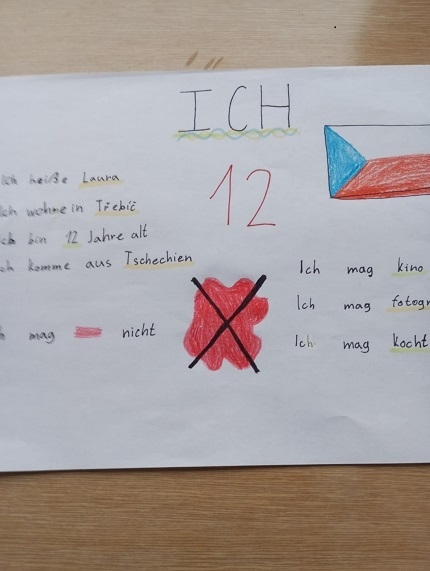 ICH
Ich heiße Laura
Ich wohne in Třebíč
ich bin 12 Jahre alt
12
komme aus Tschechien
mag nicht
Ich mag kino
Ich mag
Ich mag kocht